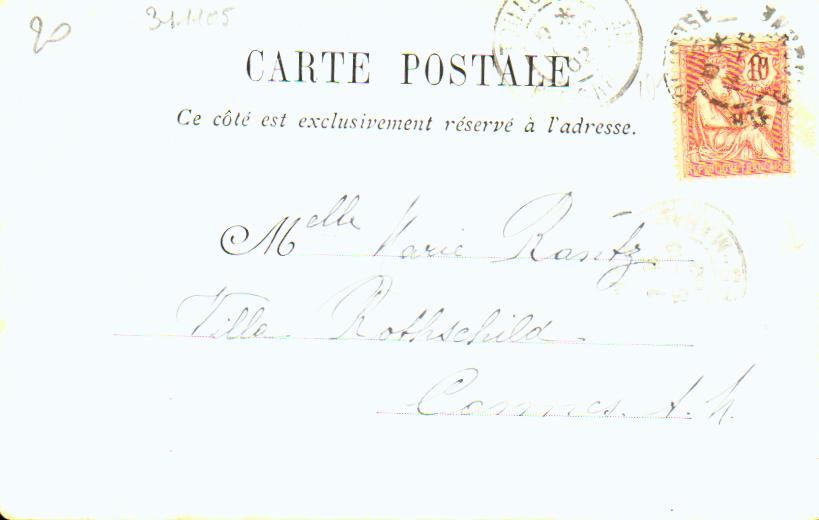 20
311105
CARTE POSTALE
Ce côté est exclusivement réservé à l'adresse.
10
Melle Marie Rantz
Villa Rothschild
Cannes. A. M.